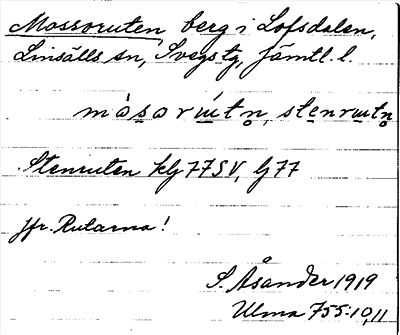 Mossoruten, berg i Lofsdalen,
Linsälls sn, Svegs tg, Jämtl. l.
måsarɯtn̥, stenrɯtn̥
Stenruten klj 77 SV, lj 77
jfr. Rutarna!
S. Åsander 1919
Ulma 755:10,11